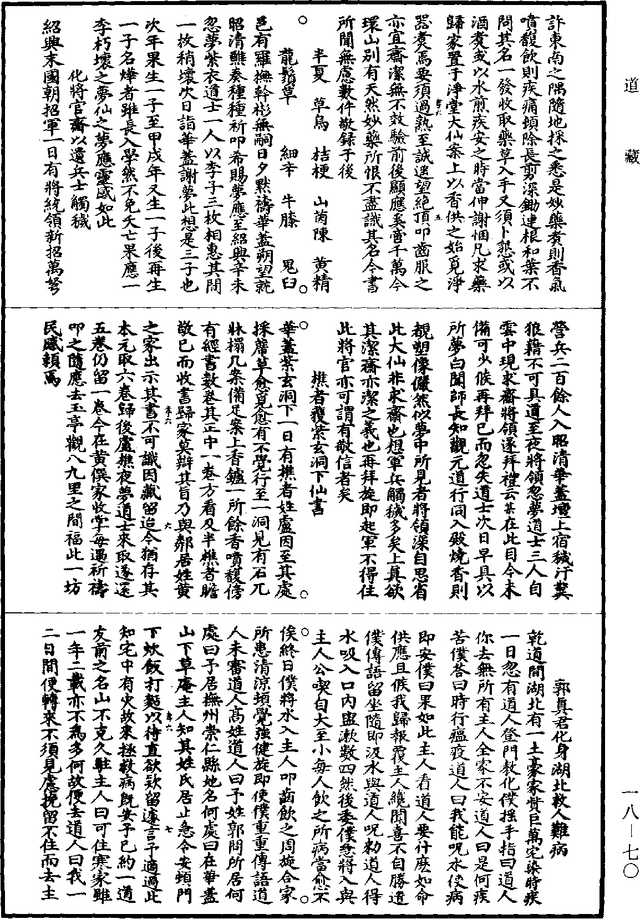 道藏
一八—七〇
許東南之隅隨地採之悉是妙藥煑則香氣
噴馥飲則疾痛頓除長剪深鋤連根和葉不
問其名一發收取藥草入手又須卜懇或以
酒煑或以水煎疾安之時當伸謝悃凡求藥
歸家置于淨堂大仙案上以香供之始覓淨
器煑焉要須過熟至誠遥望絶頂叩齒服之
亦宜齋潔無不效驗前後顯應奚啻千萬今
環山別有天然妙藥所恨不盡識其名今書
所聞無慮數件敬録于後
半夏 草烏 桔梗 山茵陳 黄精
龍鬚草 細辛 牛膝 鬼臼
邑有羅撫幹彬無嗣日夕默禱華蓋朔望就
昭清醮奏種種祈叩希賜夢應至紹興辛未
忽夢紫衣道士一人以李子三枚相惠其間
一枚稍壞次日詣華蓋謝夢此想是三子也
次年果生一子至甲戌年又生一子後再生
一子名燁者雖長入學然不免夭亡果應一
李朽壞之夢仙之夢應靈感如此
化將官齋以遺兵士觸穢
紹興末國朝招軍一日有將統領新招萬弩
營兵二百餘人入昭清華蓋壇上宿穢汙糞
狼籍不可具道至夜將領忽夢道士三人自
雲中現求齋將領遂拜禮云某在此目今未
備可少候再拜已而忽失道士次日早具以
所夢白聞師長知觀元道行同入殿燒香則
覩塑像儼然似夢中所見者將領深自思省
此大仙非求齋也想軍兵觸穢多矣上真欲
其潔齋亦潔之義也再拜旋即起軍不得住
此將官亦可謂有敬信者矣
樵者獲紫玄洞下仙書
華蓋紫玄洞下一日有樵者姓盧因至其處
採薪草愈覓愈有不覺行至一洞見有石兀
牀榻几案備足案上香鑪一所餘香噴馥傍
有經書數卷其正中一卷方看及半樵者瞻
敬已而收書歸家莫辯其旨乃與鄰居姓黄
之家出示其書不可識因藏留迨今猶存其
本元取六卷歸後盧樵夜夢道士來取遂還
五卷仍留一卷今在黄僎家收掌每遇祈禱
叩之隨應去玉亭觀八九里之間福此一坊
民咸頼焉
郭真君化身湖北救人難病
乾道間湖北有一土豪家貲巨萬宅染時疾
一日忽有道人登門教化僕摇手指曰道人
你去無所有主人全家不安道人曰是何疾
苦僕答曰時行瘟疫道人曰我能呪水使病
即安僕曰果如此主人看道人要什麽如命
供應且候我歸報覆主人纔聞喜不自勝遣
僕傳語留坐隨即汲水與道人呪勑道人得
水吸入口内盥漱數四然後委僕悉將入與
主人公喫自大至小每人飲之所病當愈不
俟終日僕將水入主人叩齒飲之周旋合家
所患清涼頓覺強健旋即使僕重重傳語道
人未審道人高姓道人曰予姓郭問所居何
處曰予居撫州崇仁縣地名何處曰在華蓋
山下草庵主人知其姓氏居止急令安頓門
下炊飯打麪以待直欲欵留遽言予適過此
知宅中有火故來拯救病既安予已約一道
友前之名山不克久駐主人曰可住寒家雖
一年二載亦不爲多何故便去道人曰我一
二日間便轉來不須見慮挽留不住而去主